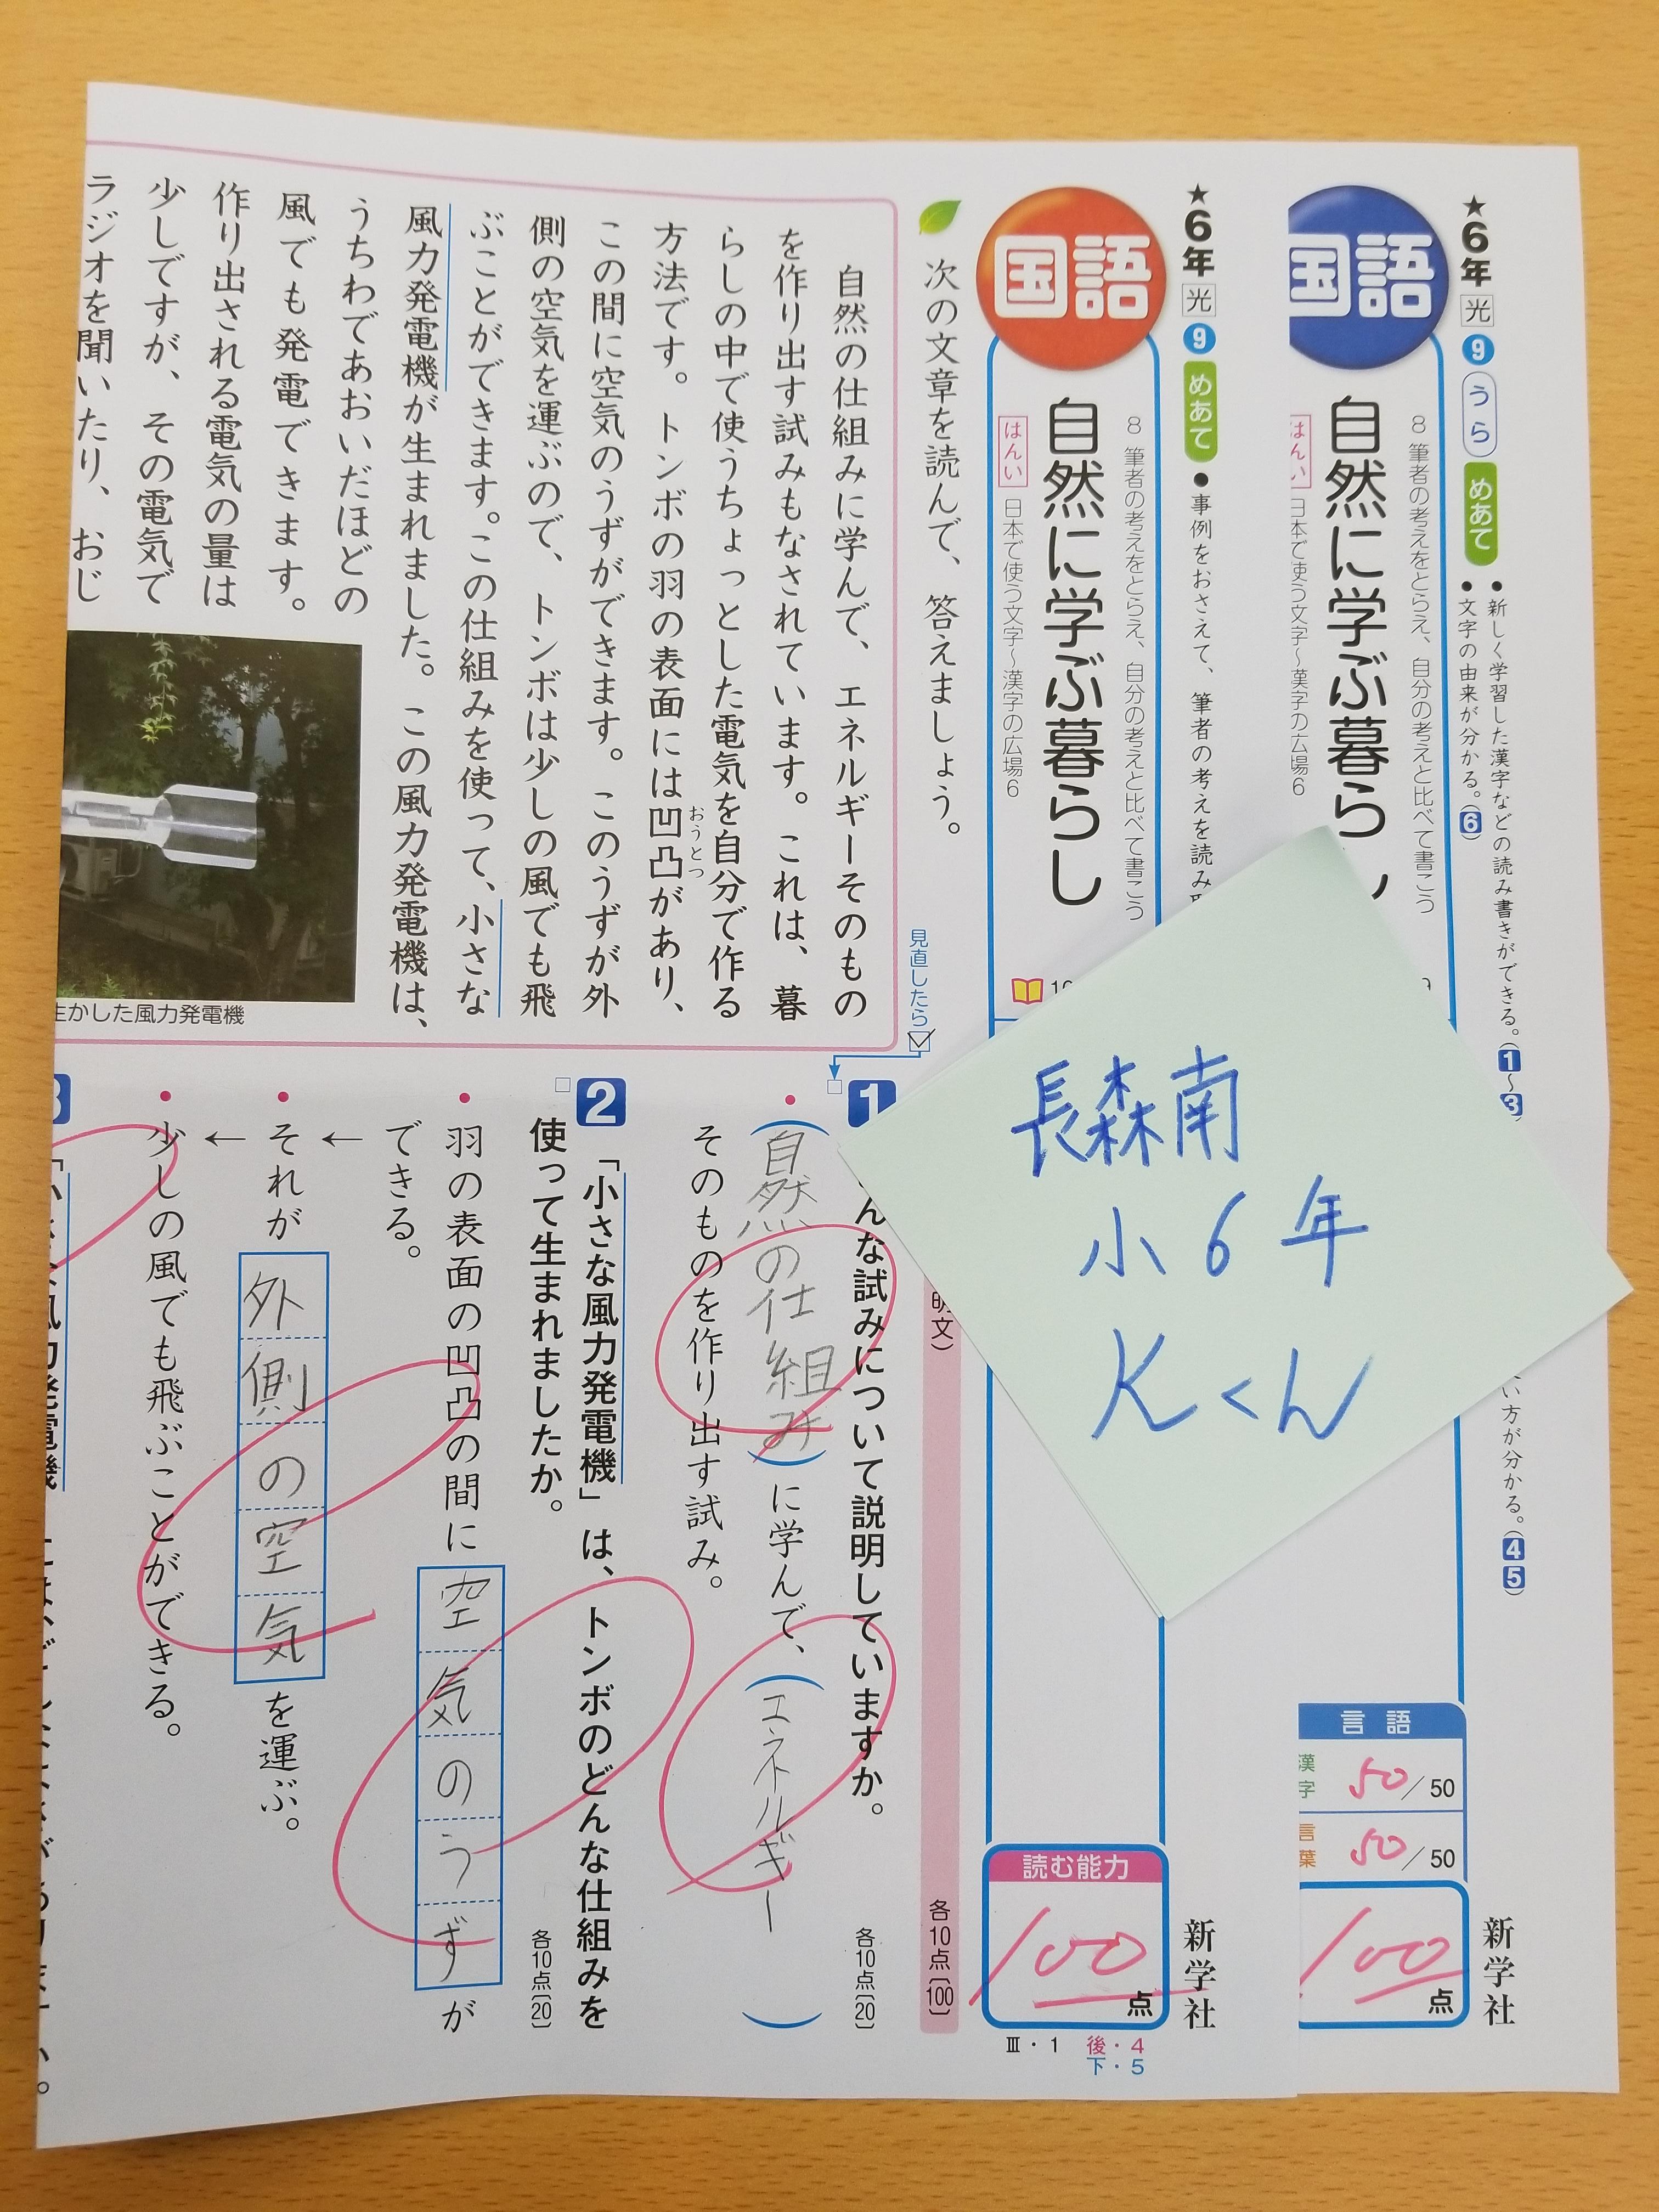 ★6年 光 9 うら めあて
●新しく学習した漢字などの読み書きができる。(1～3)
●文字の由来が分かる。(6)
い方が分かる。(4 5)
新学社
国語
8 筆者の考えをとらえ、自分の考えと比べて書こう
自然に学ぶ暮らし
はんい 日本で使う文字～漢字の広場6
9
言語
漢字 50/50
言葉 50/50
100点
★6年 光 9 めあて
●事例をおさえて、筆者の考えを読み
新学社
国語
8 筆者の考えをとらえ、自分の考えと比べて書こう
自然に学ぶ暮らし
はんい 日本で使う文字～漢字の広場6
読む能力
100点
Ⅲ・1 後・4
下・5
長森南
小6年
Kくん
次の文章を読んで、答えましょう。
見直したら
明文)
各10点〔100〕
自然の仕組みに学んで、エネルギーそのもの
を作り出す試みもなされています。これは、暮
らしの中で使うちょっとした電気を自分で作る
方法です。トンボの羽の表面には凹凸があり、
おうとつ
この間に空気のうずができます。このうずが外
側の空気を運ぶので、トンボは少しの風でも飛
ぶことができます。この仕組みを使って、小さな
風力発電機が生まれました。この風力発電機は、
うちわであおいだほどの
風でも発電できます。
作り出される電気の量は
少しですが、その電気で
ラジオを聞いたり、おじ
生かした風力発電機
1 んな試みについて説明していますか。
各10点〔20〕
●(自然の仕組み)に学んで、(エネルギー)
そのものを作り出す試み。
2 「小さな風力発電機」は、トンボのどんな仕組みを
使って生まれましたか。
各10点〔20〕
●羽の表面の凹凸の間に空気のうずが
できる。
←
●それが外側の空気を運ぶ。
←
●少しの風でも飛ぶことができる。
3